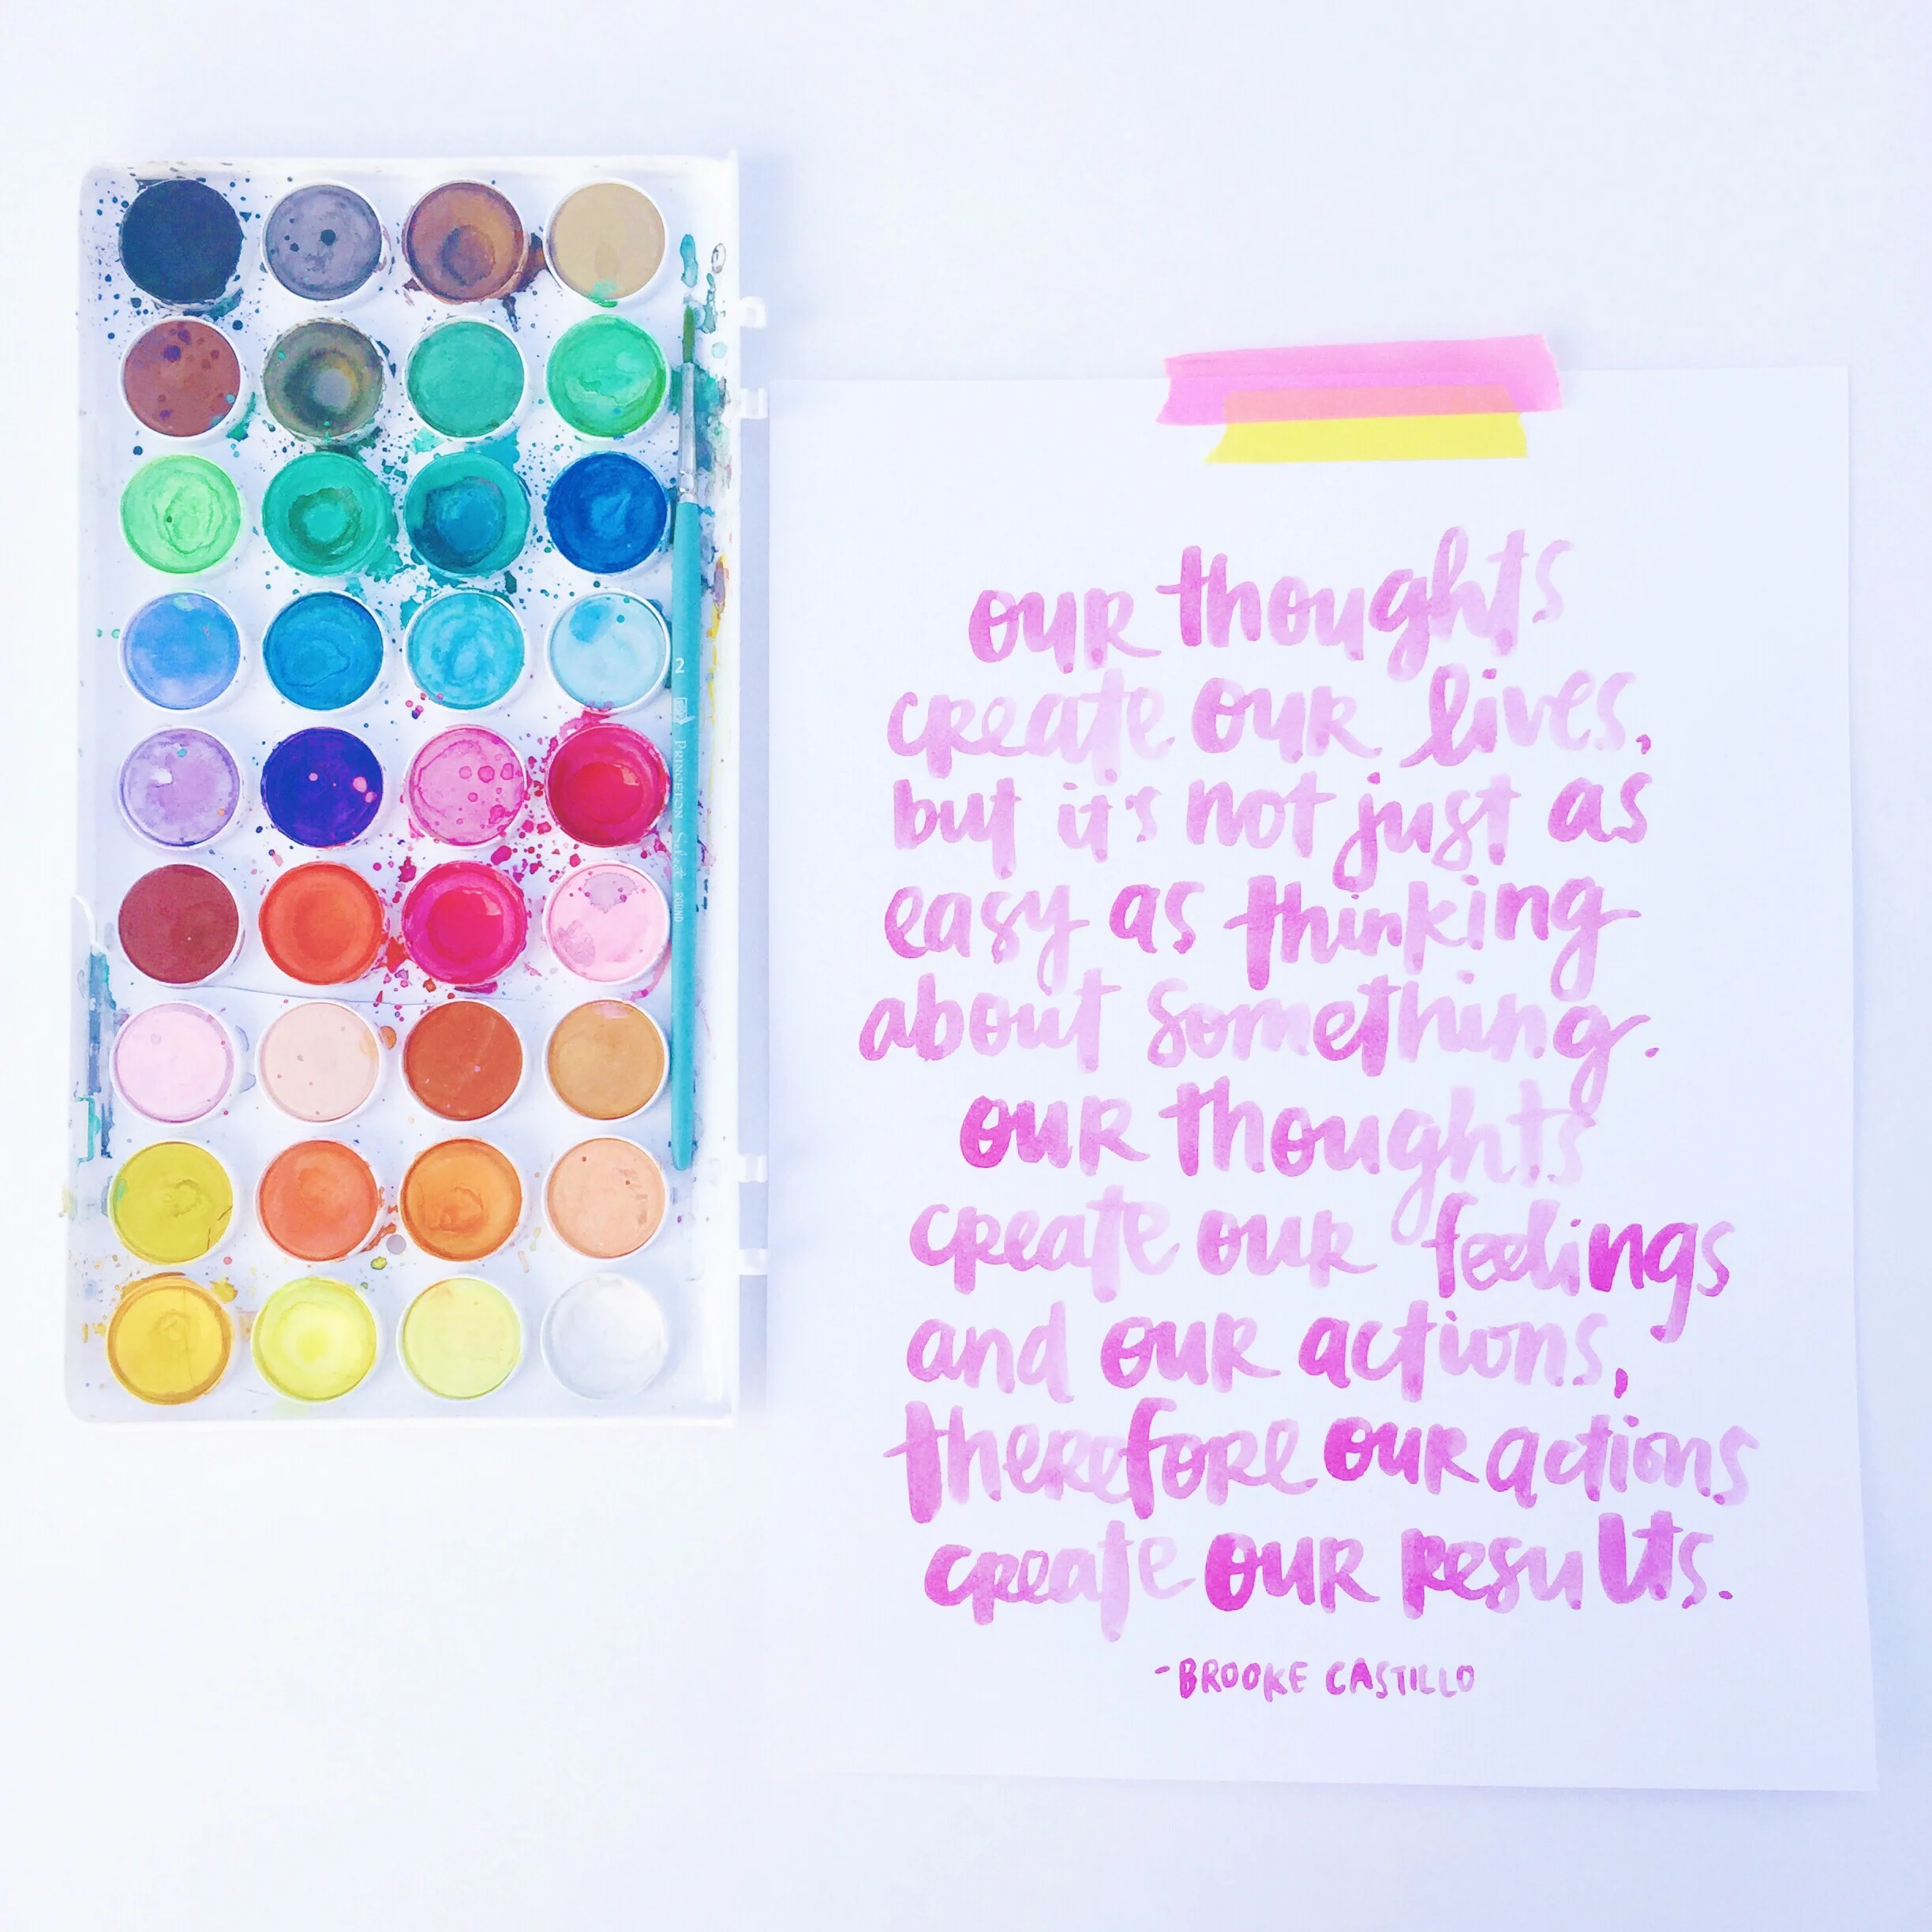 2
PRINCETON Select ROUND
our thoughts
create our lives,
but it's not just as
easy as thinking
about something.
our thoughts
create our feelings
and our actions,
therefore our actions
create our results.
-BROOKE CASTILLO